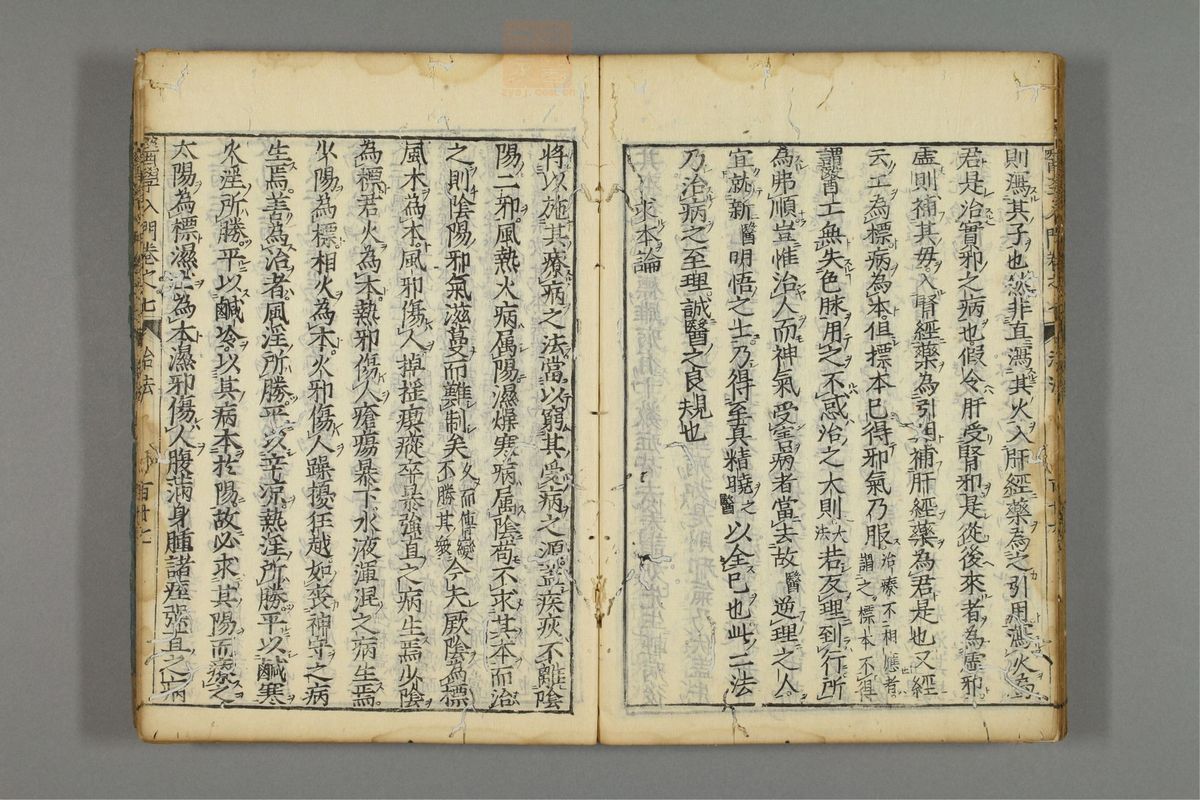 則瀉其子也然非直瀉其火入肝經藥為之引用瀉火為
君是治實邪之病也假令肝受腎邪是從後來者為虛邪
虛則補其母入腎經藥為引用補肝經藥為君是也又經
云工為標病為本但標本已得邪氣乃服治療不相應者謂之標本不得
謂醫工無失色脉用之不惑治之大則大法若反理到行所
為弗順豈惟治人而神氣受害病者當去故醫逆理之人
宜就新醫明悟之士乃得至真精曉之醫以全已也此二法
乃治病之至理誠醫之良規也
求本論
將以施其療病之法當以窮其受病之源蓋疾疢不離陰
陽二邪風熱火病属陽濕燥寒病属陰苟不求其本而治
之則陰陽邪氣滋蔓而難制矣久而傳變不勝其衆今夫厥陰為標
風木為本風邪傷人掉搖瘈瘲卒暴強直之病生焉少陰
為標君火為本熱邪傷人瘡瘍暴下水液渾混之病生焉
少陽為標相火為本火邪傷人躁擾狂越如喪神守之病
生焉善為治者風淫所勝平以辛凉熱淫所勝平以鹹寒
火淫所勝平以鹹冷以其病本於陽故必求其陽而療之
太陽為標濕土為本濕邪傷人腹滿身腫諸痙強直之病
醫學入門卷之七 治法